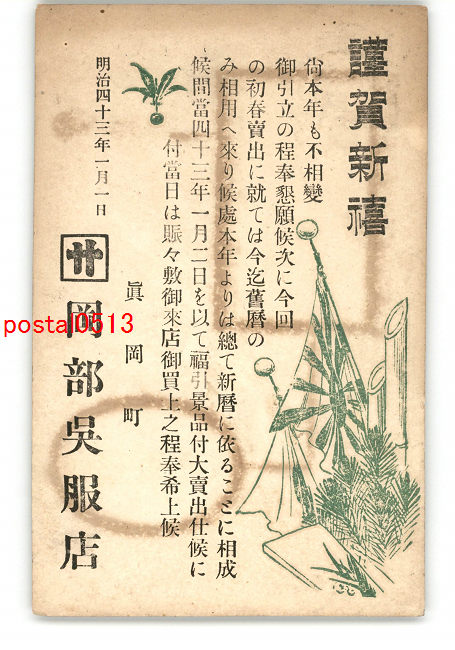 謹賀新禧
尙本年も不相變
御引立の程奉懇願候次に今回
の初春賣出に就ては今迄舊曆の
み相用へ來り候處本年よりは總て新曆に依ることに相成
候間當四十三年一月二日を以て福引景品付大賣出仕候に
付當日は賑々敷御來店御買上之程奉希上候
明治四十三年一月一日
眞岡町
廿 岡部吳服店
postal0513